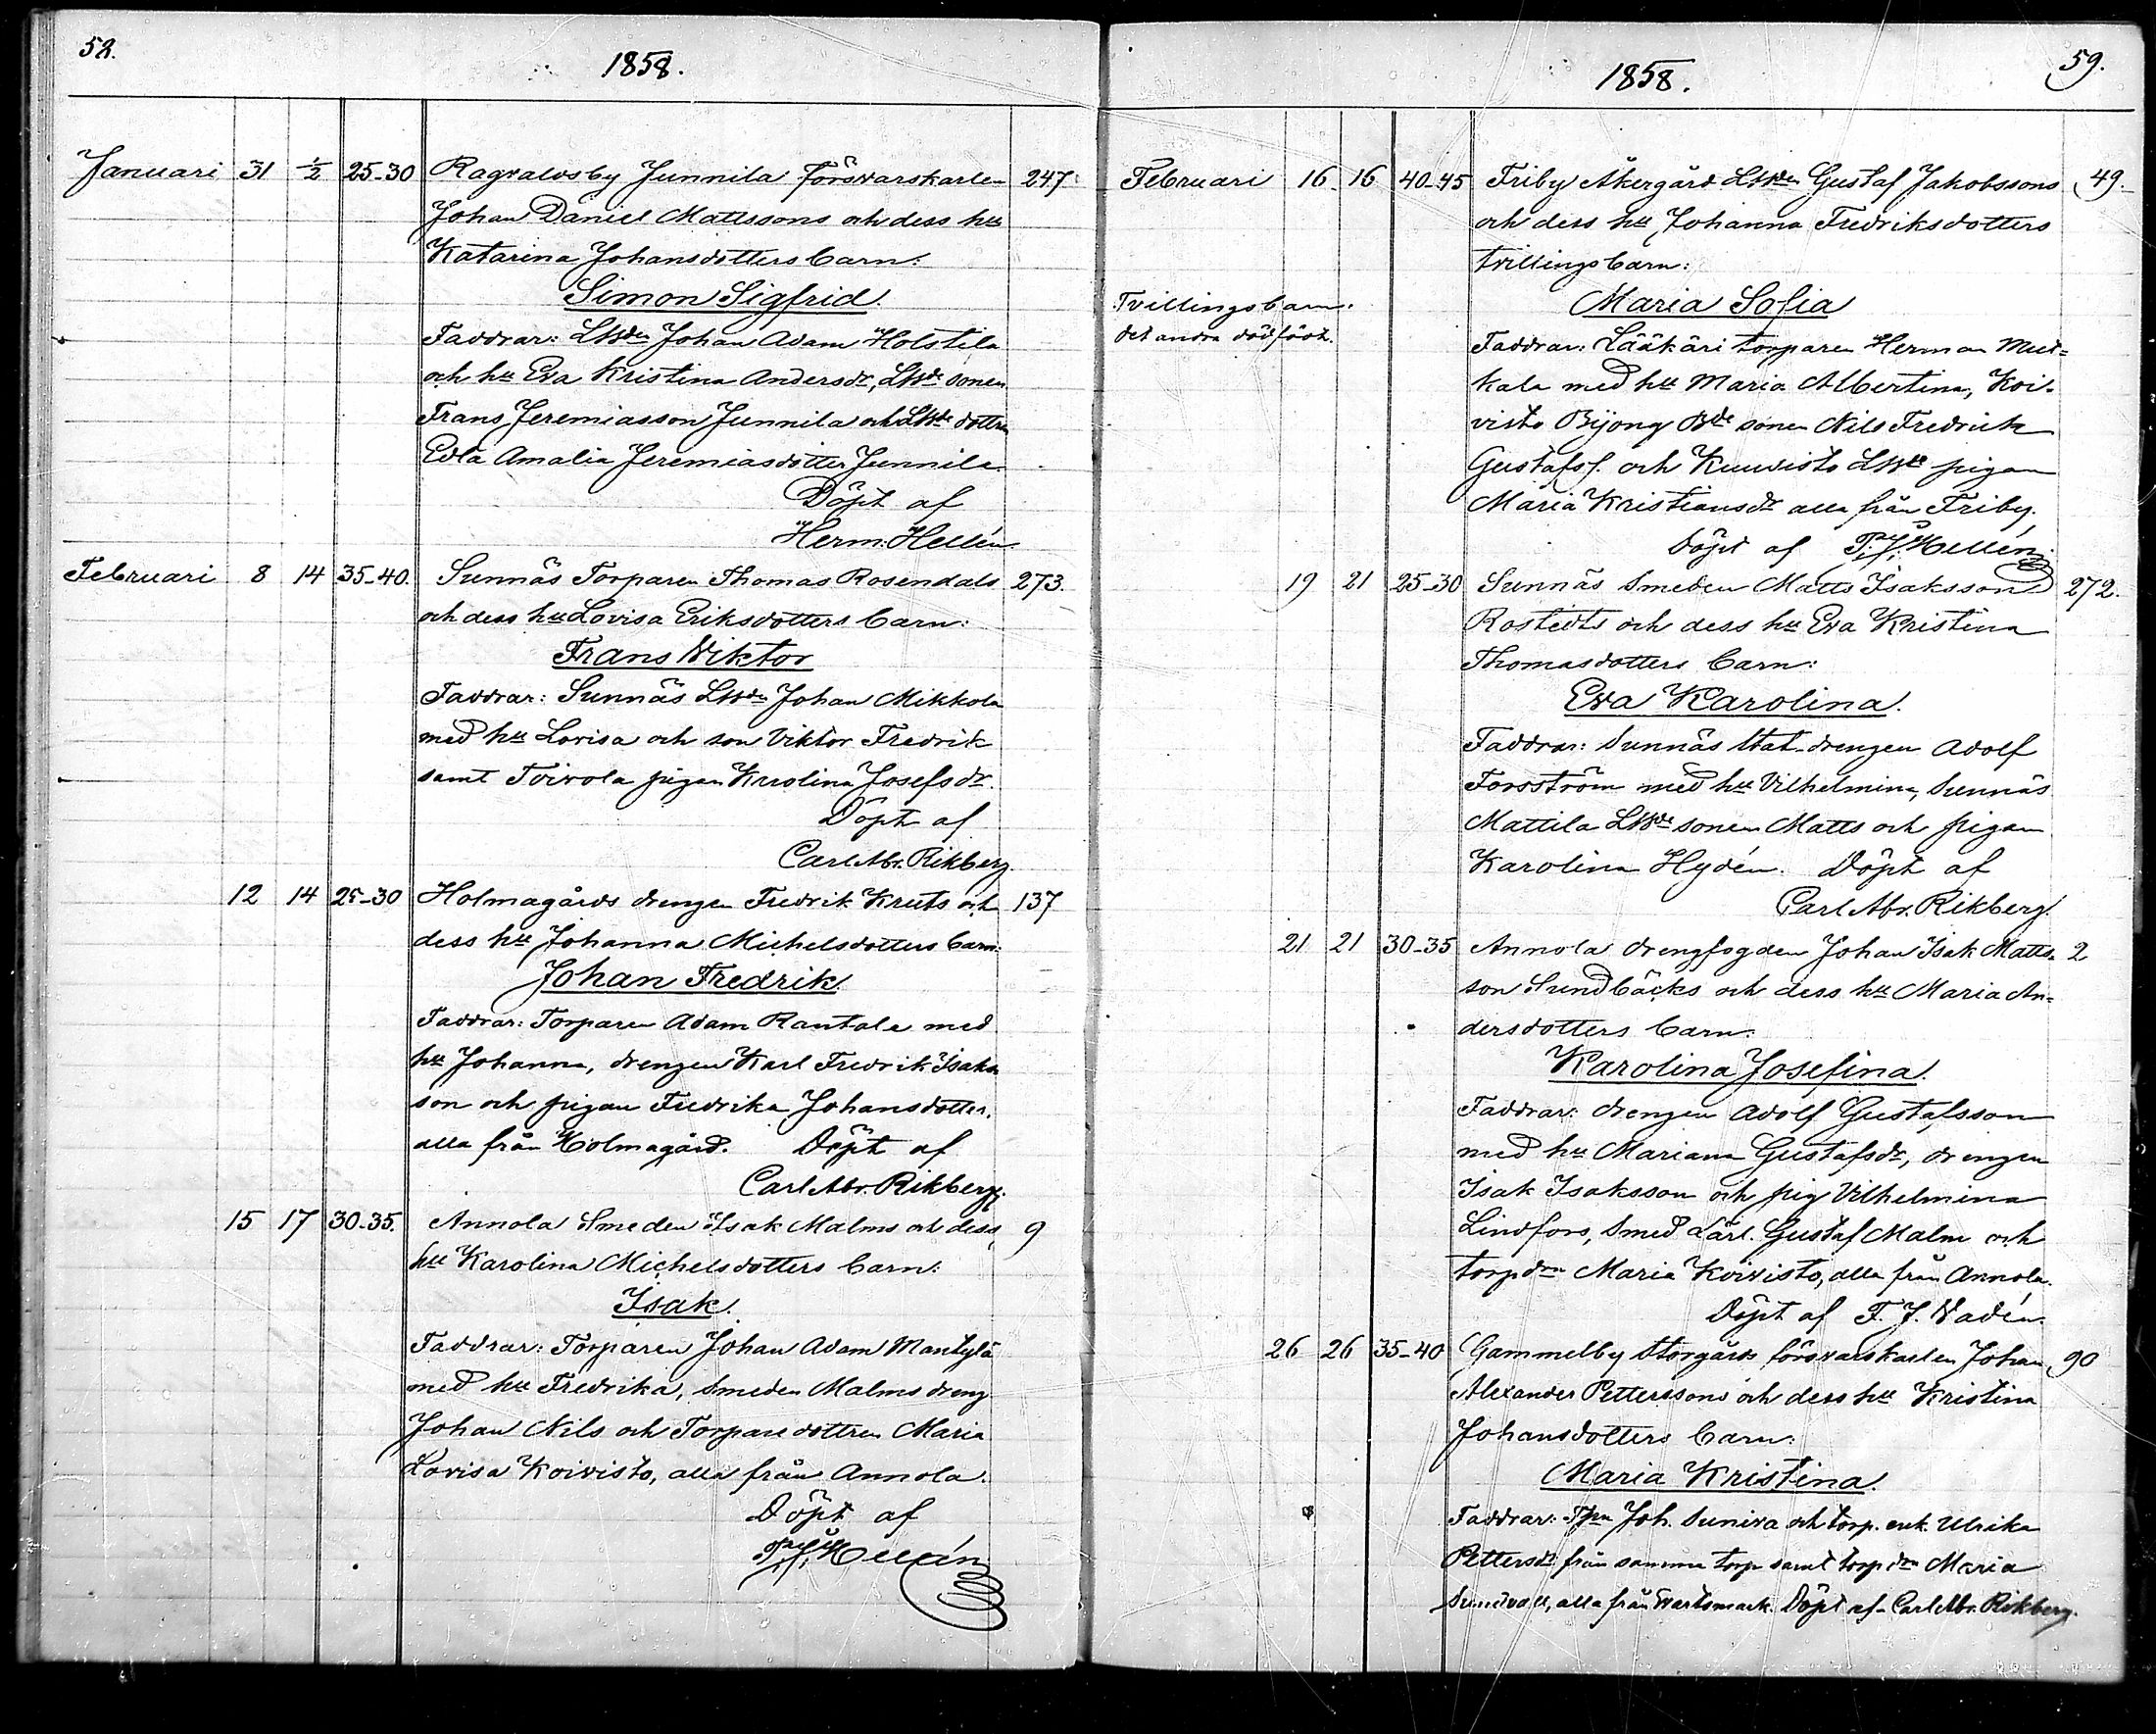 58.
1858.
Januari 31 1/2 25-30 Ragvaldsby Junnila försvarskarlen 247
Johan Daniel Mattssons och dess hu
Katarina Johansdotters barn:
Simon Sigfrid.
Faddrar: Lbden Johan Adam Holstila
och hu Eva Kristina Andersdr, Lbde sonen
Frans Jeremiasson Junnila och Lbde dottren
Edla Amalia Jeremiasdotter Junnila.
Döpt af
Herm: Hellén.
Februari 8 14 35-40. Sunnäs Torparen Thomas Rosendals 273.
och dess hu Lovisa Eriksdotters barn:
Frans Viktor
Faddrar: Sunnäs Lbden Johan Mikkola
med hu Lovisa och son Viktor Fredrik
samt Toivola pigan Karolina Josefsdr.
Döpt af
Carl Abr. Rikberg.
12 14 25-30 Holmagårds drengen Fredrik Kruts och 137
dess hu Johanna Michelsdotters barn:
Johan Fredrik.
Faddrar: Torparen Adam Rantala med
hu Johanna, drengen Karl Fredrik Isaks
son och pigan Fredrika Johansdotter,
alla från Holmagård. Döpt af
Carl Abr. Rikberg.
15 17 30-35. Annola Smeden Isak Malms och dess 9
hu Karolina Michelsdotters barn:
Isak.
Faddrar: Torparen Johan Adam Mantylä
med hu Fredrika, Smeden Malms dreng
Johan Nils och Torparedottren Maria
Lovisa Koivisto, alla från Annola.
Döpt af
Hellén
59.
1858.
Februari 16 16 40-45 Friby Åkergård Lbden Gustaf Jakobssons 49.
och dess hu Johanna Fredriksdotters
tvillingsbarn:
Tvillingsbarn.
det andra dödfödt.
Maria Sofia
Faddrar: Lääkäri torparen Herman
kala med hu Maria Albertina, Koi-
visto Bijong Bde sonen Nils Fredrik
Gustafss. och Kuuvisto Lbde pigan
Maria Kristiansdr alla från Friby.
Döpt af Hellén
19 21 25-30 Sunnäs Smeden Matts Isaksson 272.
Rostedts och dess hu Eva Kristina
Thomasdotters barn:
Eva Karolina.
Faddrar: Sunnäs Stat-drengen Adolf
Forsström med hu Vilhelmina, Sunnäs
Mattila Lbde sonen Matts och pigan
Karolina Hydén. Döpt af
Carl Abr. Rikberg.
21 21 30-35 Annola drengfogden Johan Isak Matts- 2
son Sundbäcks och dess hu Maria An-
dersdotters barn:
Karolina Josefina.
Faddrar: drengen Adolf Gustafsson
med hu Mariana Gustafsdr, drengen
Isak Isaksson och pig Vilhelmina
Lindfors, Smed Lärl. Gustaf Malm och
torpdrn Maria Koivisto, alla från Annola.
Döpt af F. J. Vadén.
26 26 35-40 Gammelby Storgårds försvarskarlen Johan 90
Alexander Petterssons och dess hu Kristina
Johansdotters barn:
Maria Kristina.
Faddrar: Tpn Joh. Suniva och torp. enk. Ulrika
Pettersdr från samma torp samt torpdrn Maria
Sundvall, alla från Svartsmark. Döpt af Carl Abr. Rikberg.